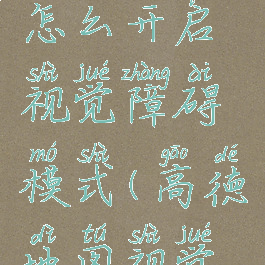 怎么开启
shì jué zhàng ài
视觉障碍
mó shì gāo dé
模式(高德
dì tú shì jué
地图视觉